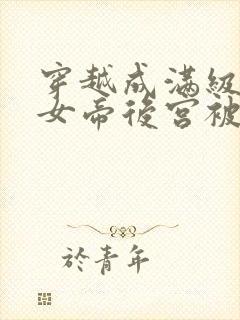 穿越成滿級
女帝後宮被
於青年